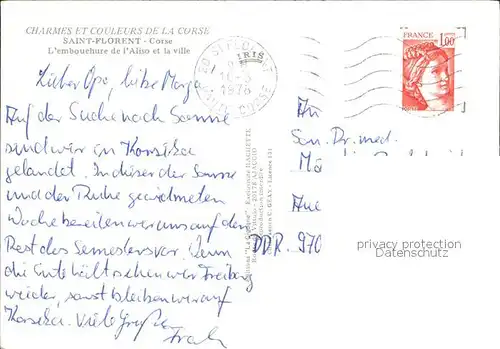 CHARMES ET COULEURS DE LA CORSE
SAINT-FLORENT - Corse
L'embouchure de l'Aliso et la ville
Lieber Opa, liebe Marga
Auf der Suche nach Sonne
sind wir an Korsika
gelandet. In dieser der Sonne
und der Ruhe gewidmeten
Woche bereiten wir uns auf den
Rest des Semesters vor. Wenn
die Ente hält sehen wir Freiburg
wieder, sonst bleiben wir auf
Korsika. Viele Grüße
ST FLORENT
1978
CORSE
FRANCE
1,00
An
San. Dr. med.
Aue
DDR. 970
privacy protection
Datenschutz